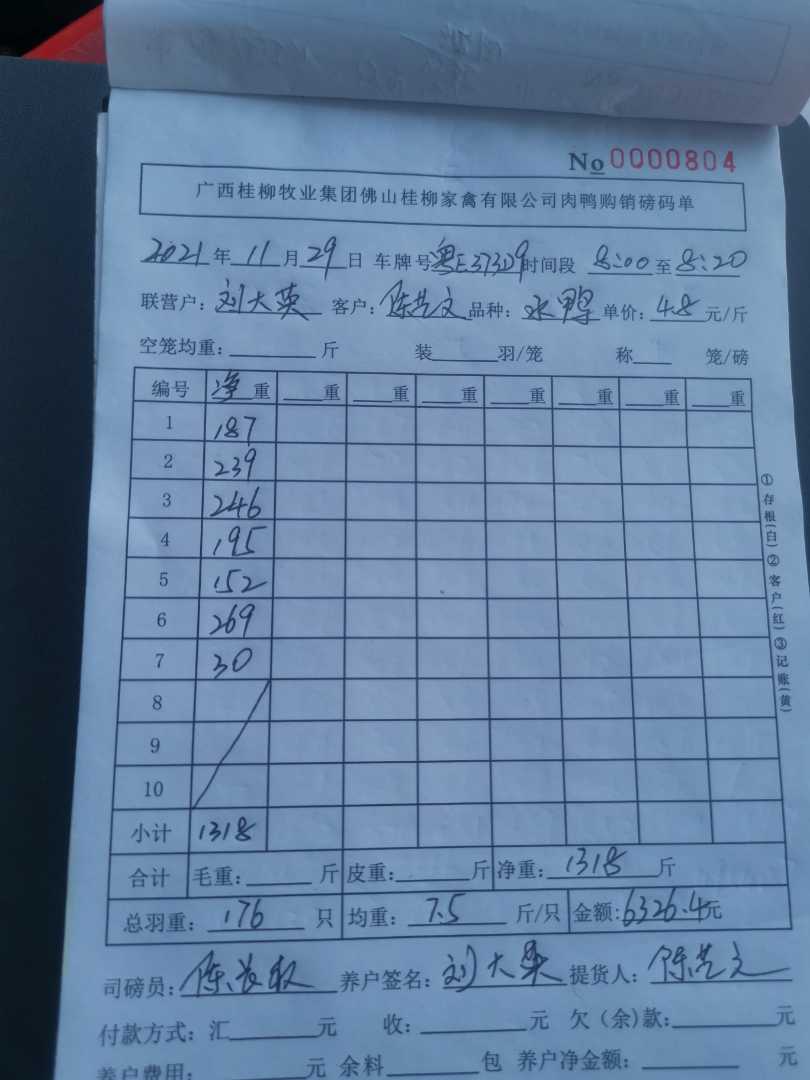 No 0000804
广西桂柳牧业集团佛山桂柳家禽有限公司肉鸭购销磅码单
2021年11月29日 车牌号粤E373D9时间段 8:00至8:20
联营户：刘大英 客户：陈艺文 品种：水鸭 单价：4.8元/斤
空笼均重：斤 装羽/笼 称笼/磅
编号 净重 重 重 重 重 重 重 重
1 187
2 239
3 246
4 195
5 152
6 269
7 30
8
9
10
小计 1318
合计 毛重：斤 皮重：斤 净重：1318斤
总羽重：176只 均重：7.5斤/只 金额：6326.4元
司磅员：陈 养户签名：刘大英 提货人：陈艺文
付款方式：汇元 收：元 欠（余）款：元
养户费用：元 余料包 养户净金额：元
①存根(白)②客户(红)③记账(黄)